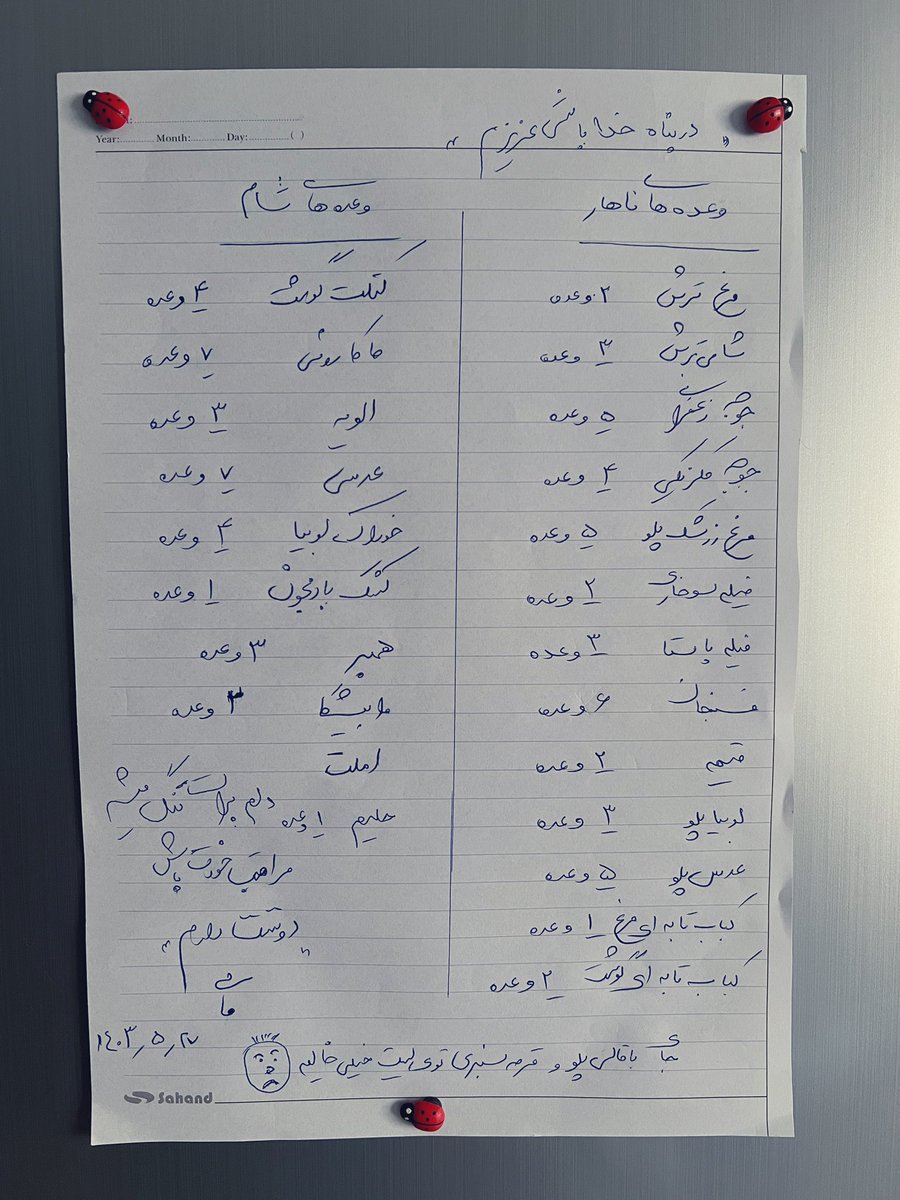 Year:.......... Month:.......... Day:............( )
"در پناه خدا باشی عزیزم"
وعده های ناهار
مرغ ترش ۲ وعده
شامی ترش ۳ وعده
جوجه زعفرانی ۵ وعده
جوجه مکزیکی ۴ وعده
مرغ زرشک پلو ۵ وعده
فیله سوخاری ۲ وعده
فیله پاستا ۳ وعده
فسنجان ۶ وعده
قیمه ۲ وعده
لوبیا پلو ۳ وعده
عدس پلو ۵ وعده
کباب تابه ای مرغ ۱ وعده
کباب تابه ای گوشت ۲ وعده
وعده های شام
کتلت گوشت ۴ وعده
ماکارونی ۷ وعده
الویه ۳ وعده
عدسی ۷ وعده
خوراک لوبیا ۴ وعده
کشک بادمجون ۱ وعده
همبر ۳ وعده
وعده
املت
حلیم ۱ وعده
دلم برات تنگ میشه
مراقب خودت باش
"دوستت دارم"
جای باقالی پلو و قرمه سبزی توی لیست خیلی خالیه
۱۴۰۳٫۵٫۲۷
Sahand